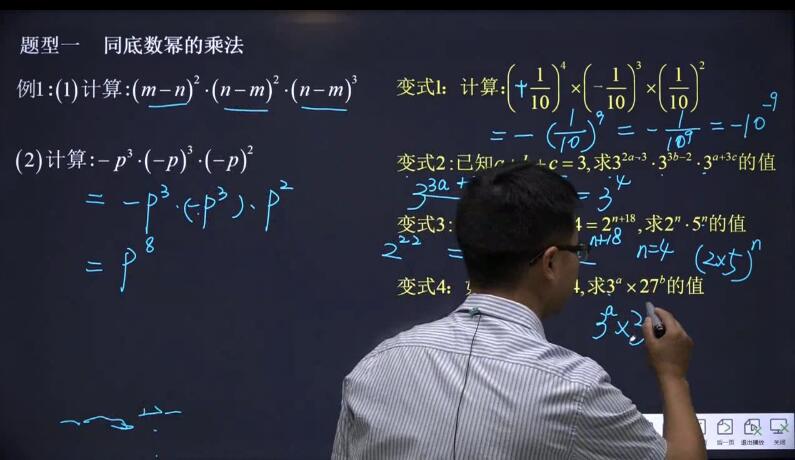 题型一 同底数幂的乘法
例1:(1)计算:(m-n)²·(n-m)²·(n-m)³
(2)计算:-p³·(-p)³·(-p)²
= -p³·(-p³)·p²
= p⁸
变式1: 计算:(+1/10)⁴×(-1/10)³×(1/10)²
= -(1/10)⁹ = -1/10⁹ = -10⁻⁹
变式2:已知a+b+c=3,求3²ᵃ⁺³·3³ᵇ⁻²·3ᵃ⁺³ᶜ的值
= 3⁴
变式3: 4=2ⁿ⁺¹⁸,求2ⁿ·5ⁿ的值
2²² = n+18 n=4 (2×5)ⁿ
变式4: 4,求3ᵃ×27ᵇ的值
3ᵃ×
后一页 退出播放 关闭